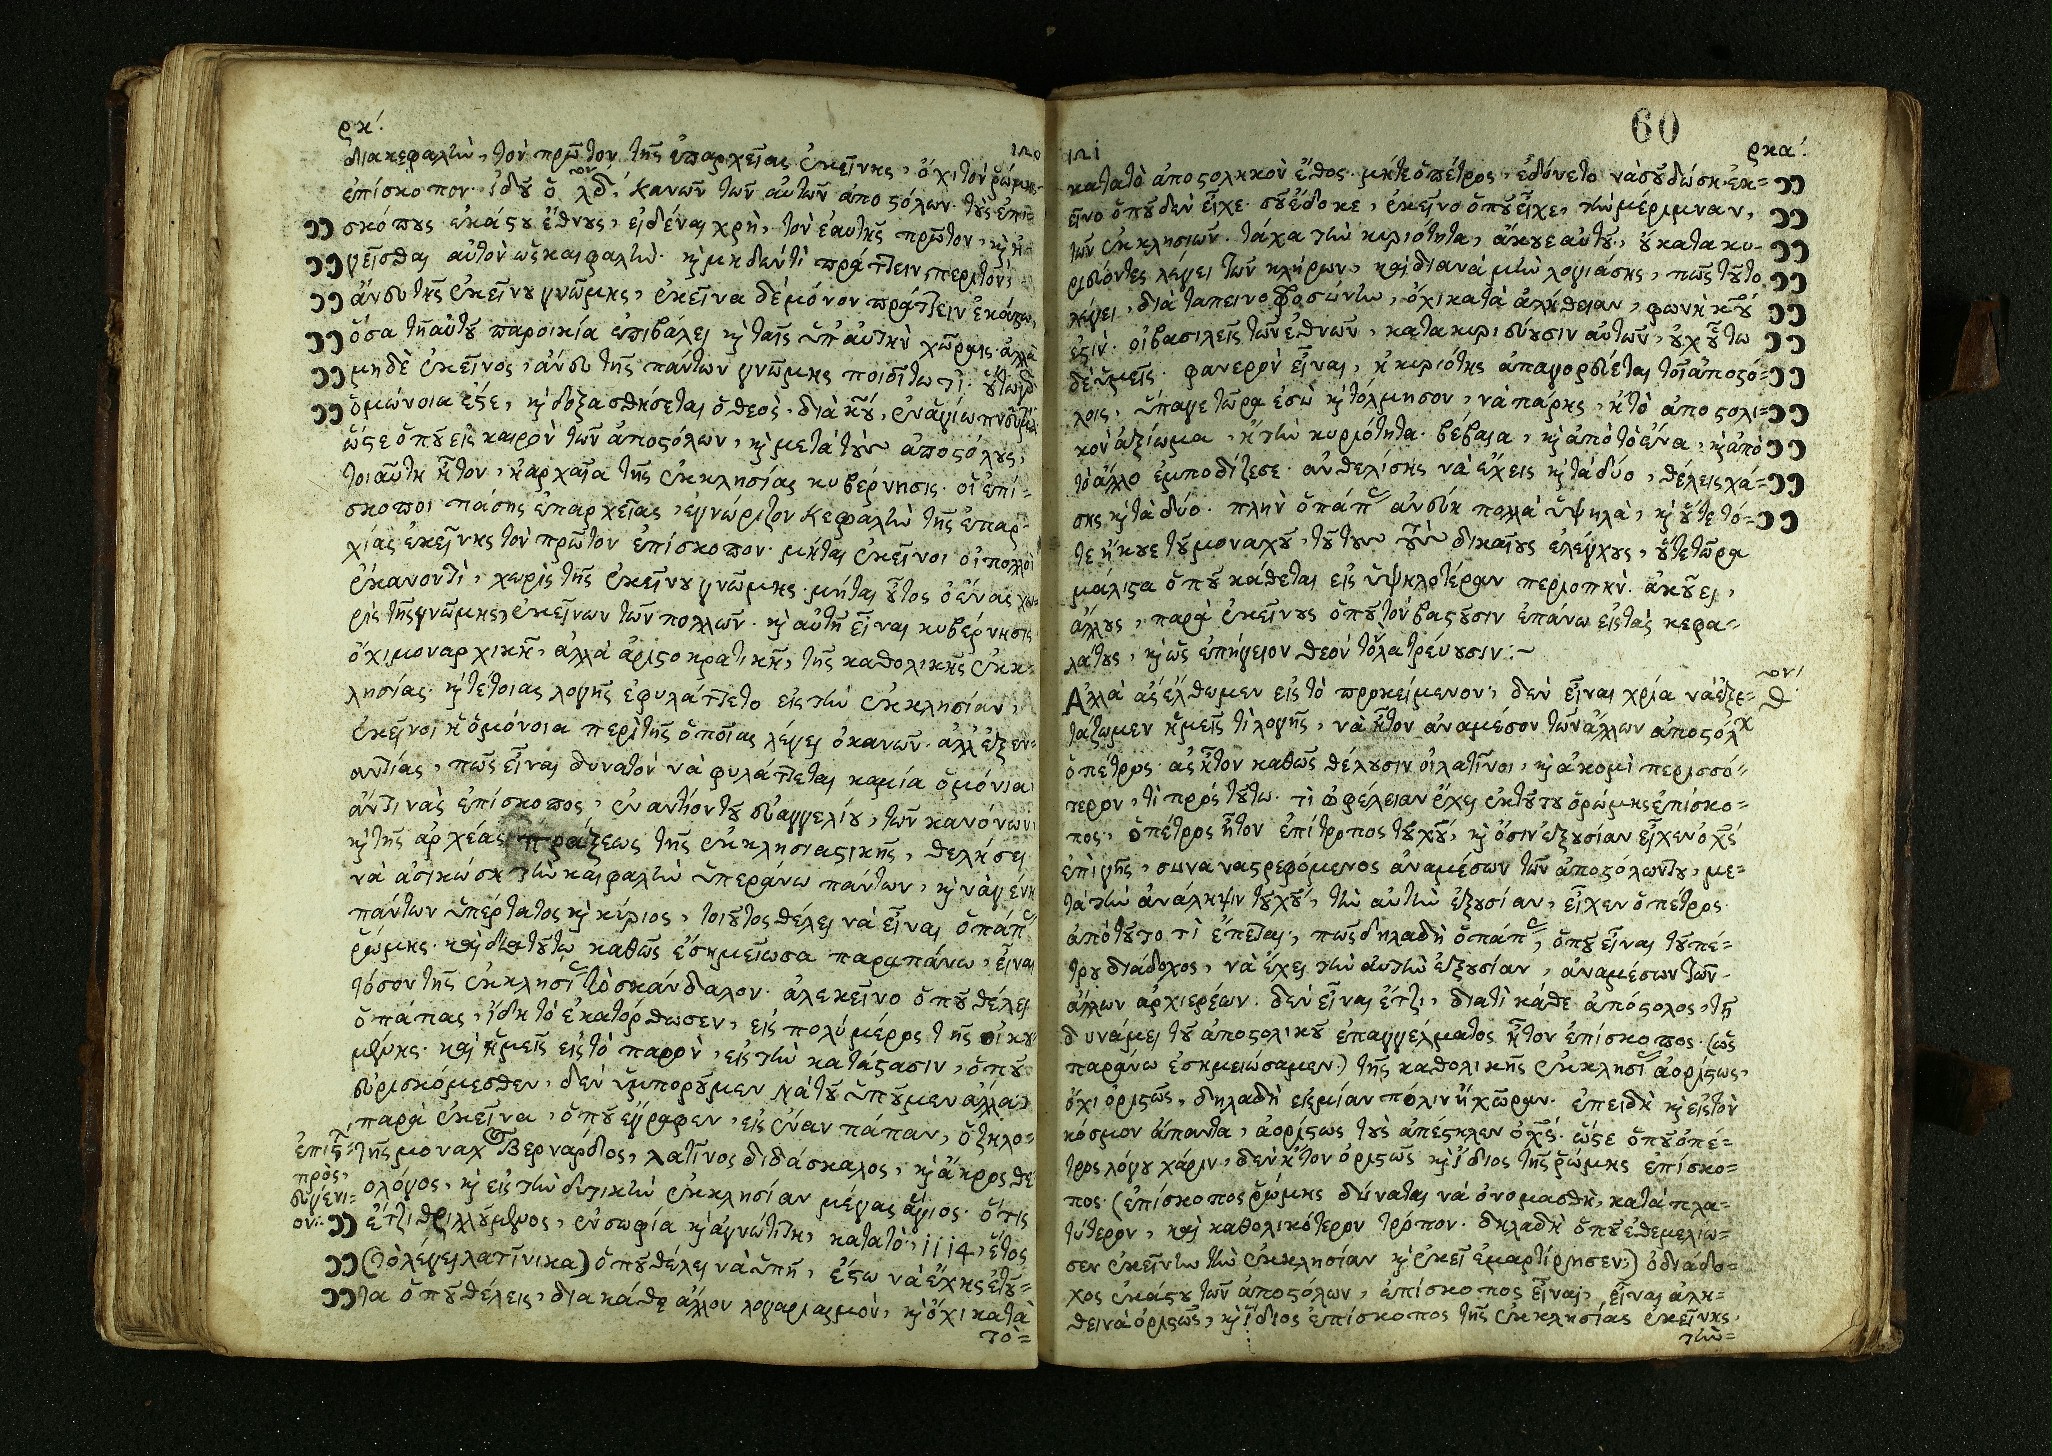 ρκ΄.
120
διακεφαλὴν, τὸν πρῶτον τῆς ἐπαρχεῖας ἐκεῖνης, ὄχι τὸν ῥώμης
ἐπίσκοπον. ἰδοὺ ὁ λδ΄. κανὼν τῶν αὐτῶν ἀποστόλων. τοὺς ἐπι=
σκόπους ἑκάστου ἔθνους, εἰδέναι χρὴ, τὸν ἑαυτῆς πρῶτον, κὶ ἡ=
γεῖσθαι αὐτὸν ὡς καιφαλὴν. κὶ μηδέντι πράττειν περιτὸν,
ἄνευ τῆς ἐκεῖνου γνώμης, ἐκεῖνα δὲ μόνον πράττειν ἑκάστω,
ὅσα τῆ αὐτοῦ παροικία ἐπιβάλει κὶ ταῖς ὑπ' αὐτὴν χώραις. ἀλλὰ
μηδὲ ἐκεῖνος, ἄνευ τῆς πάντων γνώμης ποιεῖτω τὶ. οὕτω γὰρ
ὁμώνοια ἔσται, κὶ δοξασθήσεται ὁ θεὸς. διὰ κυ, ἐν ἁγίω πνεύματι
ὥστε ὁποῦ εἰς καιρὸν τῶν ἀποστόλων, κὶ μετὰ τοὺς ἀποστόλους,
τοιαύτη ἦτον, ἡ ἀρχαῖα τῆς ἐκκλησίας κυβέρνησις. οἱ ἐπί=
σκοποι πάσης ἐπαρχεῖας, ἐγνώριζον κεφαλὴν τῆς ἐπαρ=
χίας ἐκεῖνης τὸν πρῶτον ἐπίσκοπον. μήτε ἐκεῖνοι οἱ πολλοὶ
ἐκάνον τὶ, χωρὶς τῆς ἐκεῖνου γνώμης. μήτε οὗτος ὁ ἕνας χω=
ρὶς τῆς γνώμης, ἐκεῖνων τῶν πολλῶν. κὶ αὐτὴ εἶναι κυβέρνησις
ὄχι μοναρχικὴ, ἀλλὰ ἀριστοκρατικὴ, τῆς καθολικῆς ἐκκ=
λησίας. κὶ τέτοιας λογῆς ἐφυλάττετο εἰς τὴν ἐκκλησίαν,
ἐκεῖνοι ἡ ὁμόνοια περὶ τῆς ὁποῖας λέγει ὁ κανὼν. ἀλλ' ἐξεν=
αντίας, πῶς εἶναι δυνατὸν νὰ φυλάττεται καμία ὁμόνοια
ἄντινὰς ἐπίσκοπος, ἐναντίον τοῦ εὐαγγελίου, τῶν κανόνων
κὶ τῆς ἀρχέας πράξεως τῆς ἐκκλησιαστικῆς, θελήσει
νὰ ἀσικώση τὴν καιφαλὴν ὑπεράνω πάντων, κὶ νὰ γένη
πάντων ὑπέρτατος κὶ κύριος, τοιοῦτος θέλει νὰ εἶναι ὁ πάπας
ῥώμης. καὶ διὰ τοῦτω καθὼς ἐσημείωσα παραπάνω, εἶναι
τόσον τῆς ἐκκλησίας τὸ σκάνδαλον. ἀλεκεῖνο ὁποῦ θέλει
ὁ πάπας, ἴδη τὸ ἐκατόρθωσεν, εἰς πολὺ μέρος τῆς οἰκου
μένης. καὶ ἡμεῖς εἰς τὸ παρὸν, εἰς τὴν κατάστασιν, ὁποῦ
εὑρισκόμεσθεν, δὲν ὑμποροῦμεν νὰ τοῦ ὑποῦμεν ἄλλα
παρὰ ἐκεῖνα, ὁποῦ ἔγραφεν, εἰς ἕναν πάπαν, ὁ ζηλο=
τῆς μοναχὸς Βερνάρδιος, λατῖνος διδάσκαλος, κὶ ἄκρος θε
ολόγος, κὶ εἰς τὴν δυτικὴν ἐκκλησίαν μέγας ἅγιος. ὅτις
ἔτζι θριλλούμενος, ἐν σοφία κὶ ἁγιώτητι, κατὰ τὸ, 1114, ἔτος
(τὸ λέγει λατῖνικα) ὁποῦ θέλει νὰ ὑπῆ, ἔστω νὰ ἔχης ἐτοῦ=
τα ὁποῦ θέλεις, διὰ κάθε ἄλλον λογαριασμὸν, κὶ ὄχι κατὰ
τὸ=
ἐπιστ=
πρὸς,
εὐγένι=
ον:
60
121
ρκα΄.
κατὰ τὸ ἀποστολικὸν ἔθος. μήτε ὁ πέτρος, ἐδύνετο νὰ σοῦ δώση, ἐκ=
εῖνο ὁποῦ δὲν εἶχε. σοῦ ἔδοκε, ἐκεῖνο ὁποῦ εἶχε, τὴν μέριμναν,
τῶν ἐκκλησιῶν. τάχα τὴν κυριότητα, ἄκουε αὐτοῦ, οὐ κατακυ=
ριεύοντες λέγει τῶν κλήρων, καὶ διανὰ μὴν λογιάσης, πῶς τοῦτο
λέγει, διὰ ταπεινοφροσύνην, ὄχι κατὰ ἀλήθειαν, φωνὴ κυ
ἐστίν. οἱ βασιλεῖς τῶν ἐθνῶν, κατακυριεύουσιν αὐτῶν, οὐχ οὕτω
δὲ ὑμεῖς. φανερὸν εἶναι, ἡ κυριότης ἀπαγορεύεται τοῖς ἀποστό=
λοις, ὕπαγε τώρα ἐσὺ κὶ τόλμησον, νὰ πάρης, ἢ τὸ ἀποστολι=
κὸν ἀξίωμα, ἢ τὴν κυριότητα. βέβαια, κὶ ἀπὸ τὸ ἕνα, κὶ ἀπὸ
τὸ ἄλλο ἐμποδίζεσε. ἀν θελίσης νὰ ἔχεις κὶ τὰ δύο, θέλεις χά=
σης κὶ τὰ δύο. πλὴν ὁ πάπας ἀνέβη πολλὰ ὑψηλὰ, κὶ οὔτε τό=
τε ἤκουε τοῦ μοναχοῦ, τούτους τοὺς δικαῖους ἐλέγχους, οὔτε τώρα
μάλιστα ὁποῦ κάθεται εἰς ὑψηλοτέραν περιοπὴν. ἀκούει,
ἄλλους, παρὰ ἐκεῖνους ὁποῦ τὸν βαστοῦσιν ἐπάνω εἰς τὰς κεφα=
λάς τους, κὶ ὡς ἐπήγειον θεὸν τὸν λατρεύουσιν:~
Ἀλλὰ ἀς ἔλθωμεν εἰς τὸ προκείμενον, δὲν εἶναι χρία νὰ ἐξε=
τάζωμεν ἡμεῖς τὶ λογῆς, νὰ ἦτον ἀναμέσον τῶν ἄλλων ἀποστόλων
ὁ πέτρος. ἀς ἦτον καθὼς θέλουσιν οἱ λατῖνοι, κὶ ἀκομὶ περισσό=
τερον, τὶ πρὸς τοῦτω. τὶ ὀφέλειαν ἔχει ἐκ τούτου ὁ ῥώμης ἐπίσκο=
πος, ὁ πέτρος ἦτον ἐπίτροπος τοῦ χυ, κὶ ὅσιν ἐξουσίαν εἶχεν ὁ χς
ἐπὶ γῆς, συναναστρεφόμενος ἀναμέσων τῶν ἀποστόλων του, με=
τὰ τὴν ἀνάληψιν τοῦ χυ, τὴν αὐτὴν ἐξουσίαν, εἶχεν ὁ πέτρος.
ἀπὸ τοῦτο τὶ ἕπεται, πῶς δηλαδὴ ὁ πάπας, ὁποῦ εἶναι τοῦ πέ=
τρου διάδοχος, νὰ ἔχει τὴν αὐτὴν ἐξουσίαν, ἀναμέσων τῶν
ἄλλων ἀρχιερέων. δὲν εἶναι ἔτζι, διατὶ κάθε ἀπόστολος, τῆ
δυνάμει τοῦ ἀποστολικοῦ ἐπαγγέλματος ἦτον ἐπίσκοπος. (ὡς
παράνω ἐσημειώσαμεν.) τῆς καθολικῆς ἐκκλησίας ἀορίστως,
ὄχι ὁριστῶς, δηλαδὴ εἰς μίαν πόλιν ἢ χώραν. ἐπειδὴ κὶ εἰς τὸν
κόσμον ἅπαντα, ἀορίστως τοὺς ἀπέστηλεν ὁ χς. ὥστε ὁποῦ ὁ πέ=
τρος λόγου χάριν, δὲν ἦτον ὁριστῶς κὶ ἴδιος τῆς ῥώμης ἐπίσκο=
πος. (ἐπίσκοπος ῥώμης δύναται νὰ ὀνομασθῆ, κατὰ πλα=
τύτερον, καὶ καθολικότερον τρόπον. δηλαδὴ ὁποῦ ἐθεμελίω=
σεν ἐκεῖνην τὴν ἐκκλησίαν κὶ ἐκεῖ ἐμαρτίρησεν:) ὁ διάδο=
χος ἑκάστου τῶν ἀποστόλων, ἐπίσκοπος εἶναι, εἶναι ἀλη=
θεινὰ ὁριστῶς, κὶ ἴδιος ἐπίσκοπος τῆς ἐκκλησίας ἐκεῖνης,
τὴν=
θ΄.